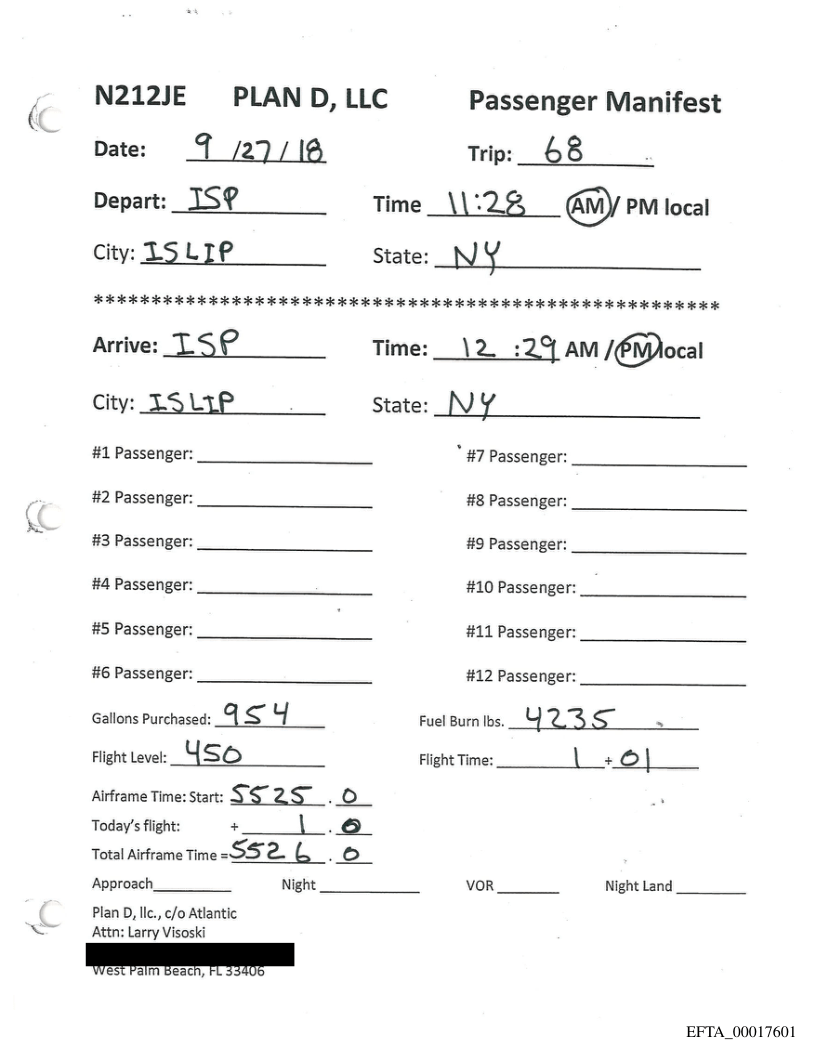 N212JE PLAN D, LLC Passenger Manifest
Date: 9 /27/ 18 Trip: 68
Depart: ISP Time 11:28 AM / PM local
City: ISLIP State: NY
******************************************************
Arrive: ISP Time: 12 :29 AM / PM local
City: ISLIP State: NY
#1 Passenger: #7 Passenger:
#2 Passenger: #8 Passenger:
#3 Passenger: #9 Passenger:
#4 Passenger: #10 Passenger:
#5 Passenger: #11 Passenger:
#6 Passenger: #12 Passenger:
Gallons Purchased: 954 Fuel Burn lbs. 4235
Flight Level: 450 Flight Time: 1 + 01
Airframe Time: Start: 5525 . 0
Today's flight: + 1 . 0
Total Airframe Time = 5526 . 0
Approach Night VOR Night Land
Plan D, llc., c/o Atlantic
Attn: Larry Visoski
West Palm Beach, FL 33406
EFTA_00017601